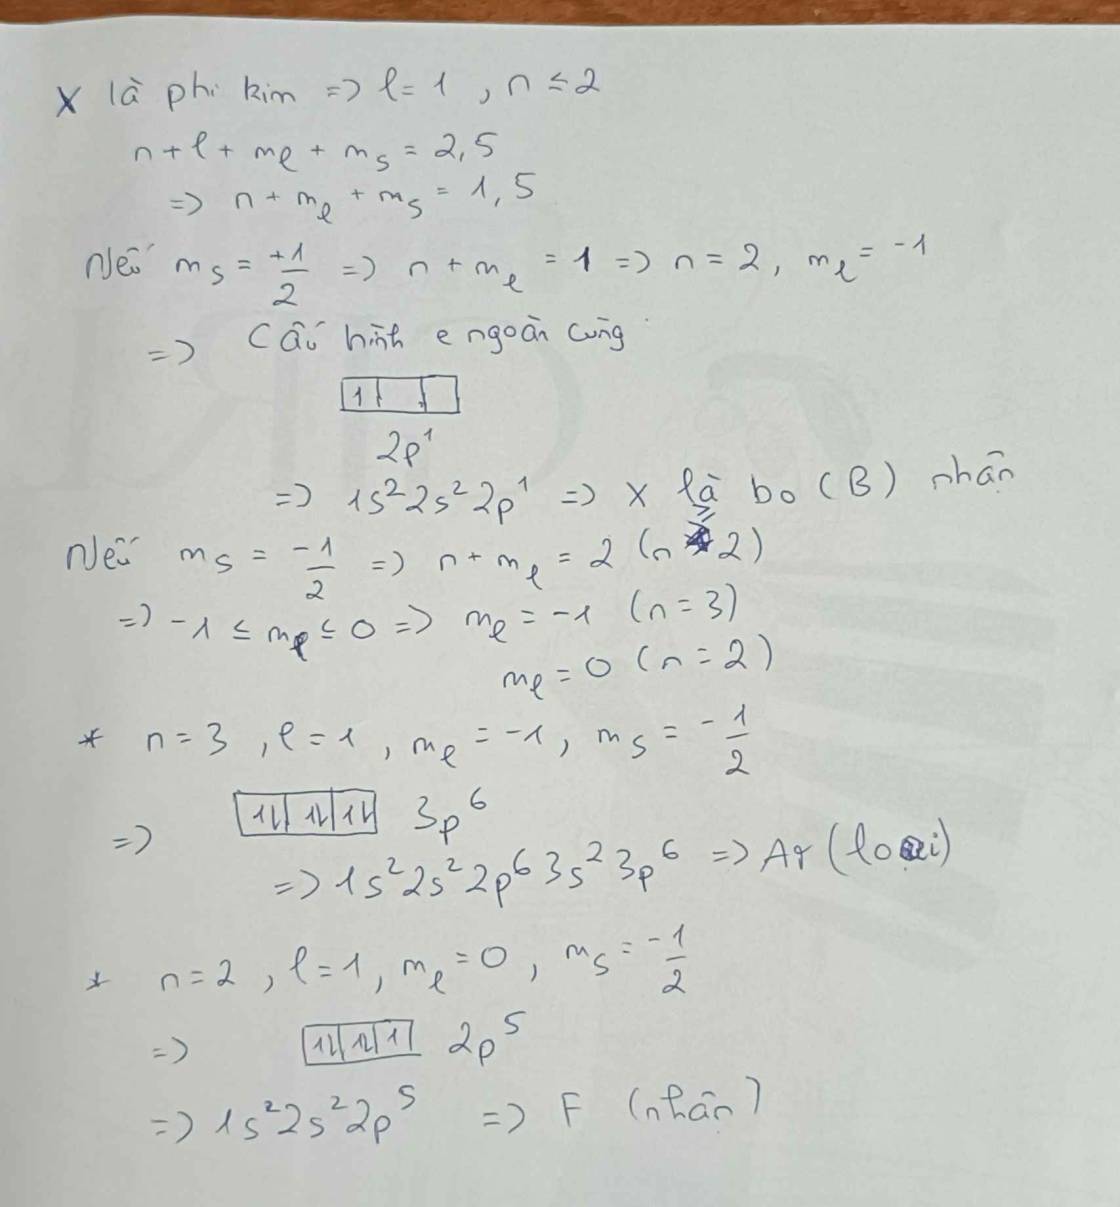 X là phi kim => l = 1 , n ≤ 2
n + l + ml + ms = 2,5
=> n + ml + ms = 1,5
Nếu ms = +1/2 => n + ml = 1 => n = 2, ml = -1
=> Cấu hình e ngoài cùng
1
2p¹
=> 1s² 2s² 2p¹ => X là bo (B) nhận
Nếu ms = -1/2 => n + ml = 2 (n ≥ 2)
=> -1 ≤ ml ≤ 0 => ml = -1 (n = 3)
ml = 0 (n = 2)
* n = 3 , l = 1 , ml = -1 , ms = -1/2
=> 1L 1L 1L 3p⁶
=> 1s² 2s² 2p⁶ 3s² 3p⁶ => Ar (loại)
* n = 2 , l = 1 , ml = 0 , ms = -1/2
=> 1L 1L 1 2p⁵
=> 1s² 2s² 2p⁵ => F (nhận)